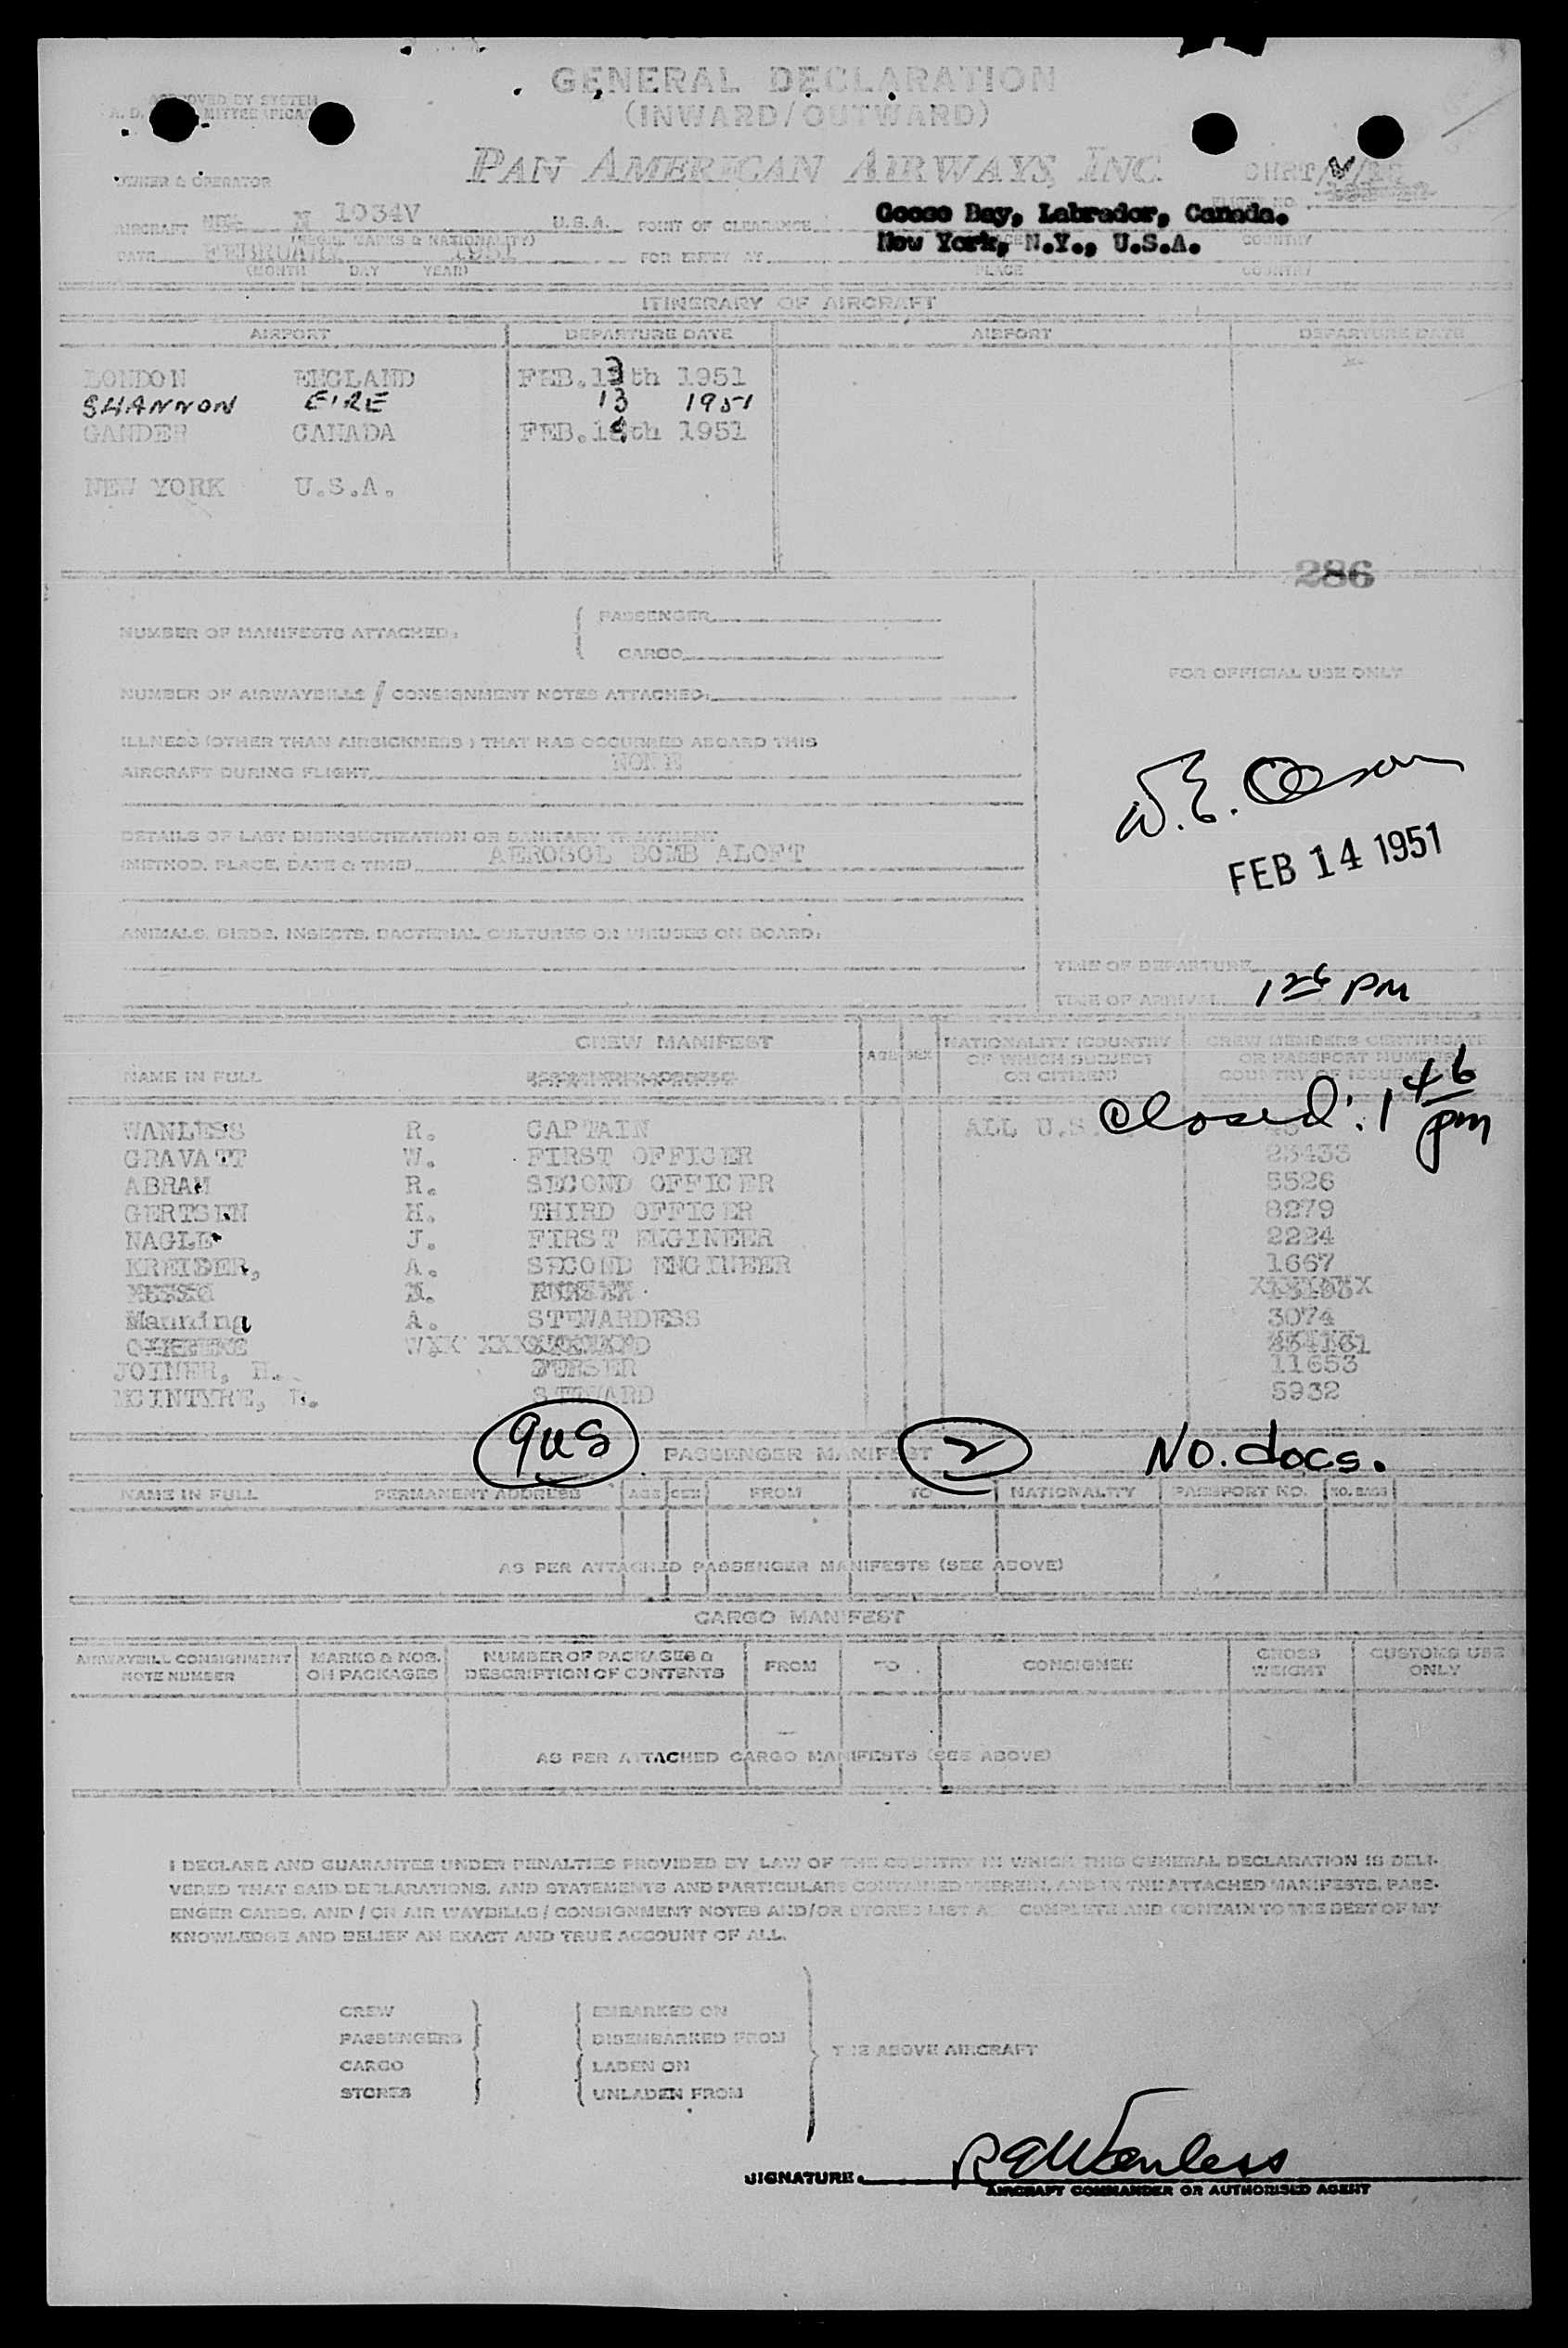 GENERAL DECLARATION
(INWARD/OUTWARD)
APPROVED BY SYSTEM
PAN AMERICAN AIRWAYS, INC.
OWNER & OPERATOR
AIRCRAFT N 1034V U.S.A. POINT OF CLEARANCE Goose Bay, Labrador, Canada.
(REGIS. MARKS & NATIONALITY) COUNTRY
DATE FEBRUARY 1951 FOR ENTRY AT New York, N.Y., U.S.A.
(MONTH DAY YEAR) PLACE COUNTRY
ITINERARY OF AIRCRAFT
AIRPORT DEPARTURE DATE AIRPORT DEPARTURE DATE
LONDON ENGLAND FEB. 13th 1951
SHANNON EIRE 13 1951
GANDER CANADA FEB. 14th 1951
NEW YORK U.S.A.
286
NUMBER OF MANIFESTS ATTACHED: PASSENGER
CARGO
FOR OFFICIAL USE ONLY
NUMBER OF AIRWAYBILLS / CONSIGNMENT NOTES ATTACHED:
ILLNESS (OTHER THAN AIRSICKNESS) THAT HAS OCCURRED ABOARD THIS
AIRCRAFT DURING FLIGHT NONE
W.E. Olson
DETAILS OF LAST DISINSECTIZATION OR SANITARY TREATMENT
(METHOD, PLACE, DATE & TIME) AEROSOL BOMB ALOFT
FEB 14 1951
ANIMALS, BIRDS, INSECTS, BACTERIAL CULTURES OR VIRUSES ON BOARD:
TIME OF DEPARTURE
TIME OF ARRIVAL 1 26 PM
CREW MANIFEST AGE SEX NATIONALITY (COUNTRY OF WHICH SUBJECT OR CITIZEN) CREW MEMBERS CERTIFICATE OR PASSPORT NUMBER COUNTRY OF ISSUE
NAME IN FULL
closed: 1 46 pm
WANLESS R. CAPTAIN ALL U.S.
GRAVATT W. FIRST OFFICER 23433
ABRAM R. SECOND OFFICER 5526
GERTSEN H. THIRD OFFICER 8279
NAGLE J. FIRST ENGINEER 2224
KREIDER, A. SECOND ENGINEER 1667
Manning A. STEWARDESS 3074
JOINER, H. PURSER 11653
MCINTYRE, STEWARD 5932
9US PASSENGER MANIFEST 2 NO. docs.
NAME IN FULL PERMANENT ADDRESS AGE SEX FROM TO NATIONALITY PASSPORT NO. NO. BAGS
AS PER ATTACHED PASSENGER MANIFESTS (SEE ABOVE)
CARGO MANIFEST
AIRWAYBILL CONSIGNMENT NOTE NUMBER MARKS & NOS. ON PACKAGES NUMBER OF PACKAGES & DESCRIPTION OF CONTENTS FROM TO CONSIGNEE GROSS WEIGHT CUSTOMS USE ONLY
AS PER ATTACHED CARGO MANIFESTS (SEE ABOVE)
I DECLARE AND GUARANTEE UNDER PENALTIES PROVIDED BY LAW OF THE COUNTRY IN WHICH THIS GENERAL DECLARATION IS DELI-
VERED THAT SAID DECLARATIONS, AND STATEMENTS AND PARTICULARS CONTAINED THEREIN, AND IN THE ATTACHED MANIFESTS, PASS-
ENGER CARDS, AND / OR AIR WAYBILLS / CONSIGNMENT NOTES AND/OR STORES LIST COMPLETE AND CONTAIN TO THE BEST OF MY
KNOWLEDGE AND BELIEF AN EXACT AND TRUE ACCOUNT OF ALL.
CREW EMBARKED ON
PASSENGERS DISEMBARKED FROM
THE ABOVE AIRCRAFT
CARGO LADEN ON
STORES UNLADEN FROM
SIGNATURE. R E Wanless
AIRCRAFT COMMANDER OR AUTHORISED AGENT